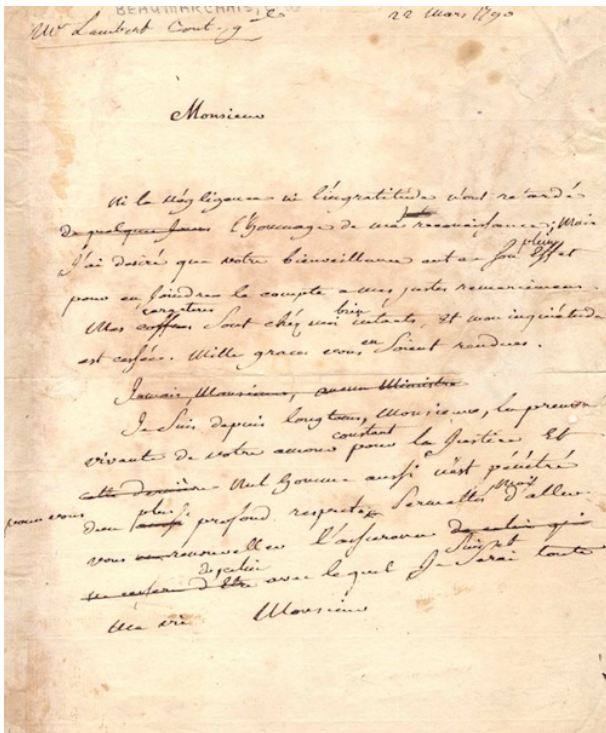 BEAUMARCHAIS,
Mr Lambert Cont. gal 22 Mars 1790
Monsieur
Ni la négligence ni l'ingratitude n'ont retardé
de quelques jours l'hommage de ma reconnaissance; Mais
J'ai desiré que votre bienveillance eut son plein Effet
pour en joindre le compte a mes justes remerciemens.
Mes coffres caractères sont chéz moi bien intacts, Et mon inquiétude
est cessée. Mille graces vous en soient rendues.
Jamais, Monsieur, aucun Ministre
Je suis depuis longtems, Monsieur, la preuve
vivante de votre amour constant pour la Justice Et
cette dernière Nul homme aussi n'est pénétré
pour vous d'un plus profond respect. Permettés moi d'aller
vous renouveller l'assurance de celui qui
me de celui avec lequel Je serai toute
ma vie Monsieur